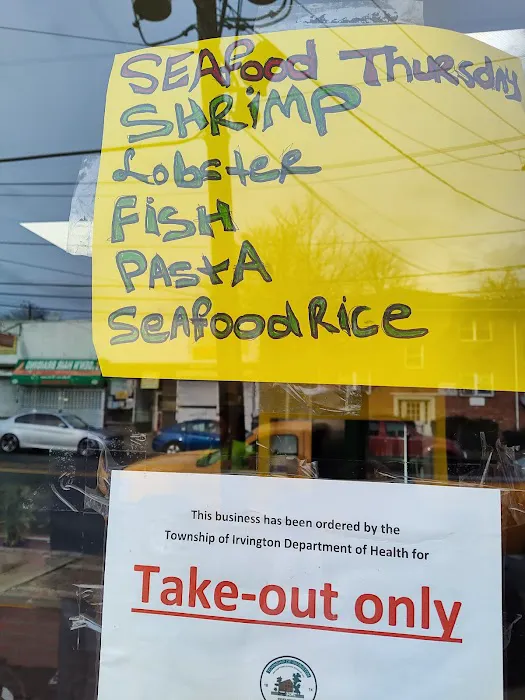 SEAfood Thursday
SHRiMP
Lobster
FisH
PAstA
SeAfood Rice
This business has been ordered by the
Township of Irvington Department of Health for
Take-out only